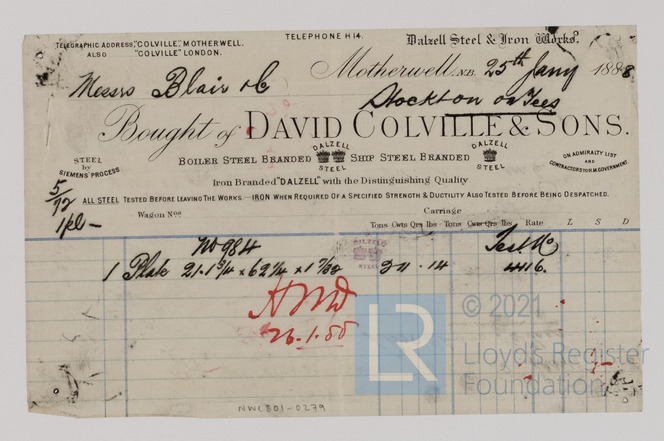 TELEGRAPHIC ADDRESS, "COLVILLE", MOTHERWELL.
ALSO "COLVILLE" LONDON.
TELEPHONE No 14.
Dalzell Steel & Iron Works.
Motherwell, N.B. 25th Jany 1888
Messrs Blair & Co
Stockton on Tees
Bought of DAVID COLVILLE & SONS.
STEEL BY SIEMENS' PROCESS
BOILER STEEL BRANDED DALZELL STEEL SHIP STEEL BRANDED DALZELL STEEL
ON ADMIRALTY LIST AND CONTRACTORS FOR H.M. GOVERNMENT.
Iron Branded "DALZELL" with the Distinguishing Quality.
5/72
1pl-
ALL STEEL TESTED BEFORE LEAVING THE WORKS.—IRON WHEN REQUIRED OF A SPECIFIED STRENGTH & DUCTILITY ALSO TESTED BEFORE BEING DESPATCHED.
Wagon Nos Carriage
Tons Cwts Qrs lbs Tons Cwts Qrs lbs Rate L S D
No 984 Test No
DALZELL STEEL
1 Plate 21.1 3/4 x 62 1/4 x 1 7/32 14 4416.
26.1.88
© 2021
LR Lloyd's Register
Foundation
NWC801-0279